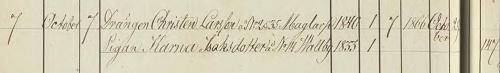 7 October 7 Drängen Christen Larsson N:o 2 & 35 Maglarp 1840 1 7 1866 October
Pigan Karna Isaksdotter N:o 14 Wallby 1833 1